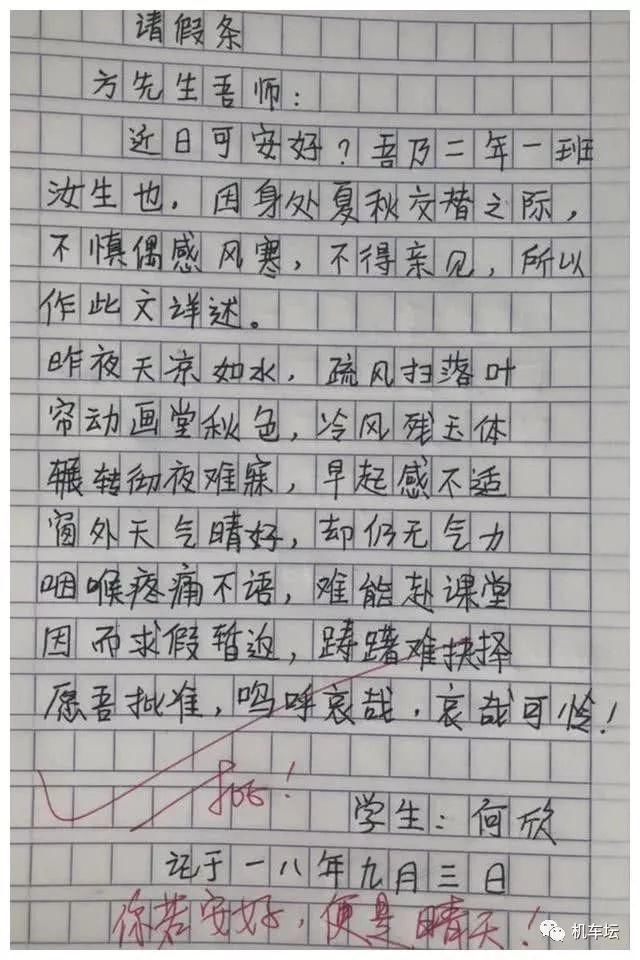 请假条
方先生吾师：
近日可安好？吾乃二年一班
汝生也，因身处夏秋交替之际，
不慎偶感风寒，不得亲见，所以
作此文详述。
昨夜天凉如水，疏风扫落叶
帘动画堂秋色，冷风残玉体
辗转彻夜难寐，早起感不适
窗外天气晴好，却仍无气力
咽喉疼痛不语，难能赴课堂
因而求假暂返，踌躇难抉择
愿吾批准，呜呼哀哉，哀哉可怜！
批！
学生：何欣
记于一八年九月三日
你若安好，便是晴天！
机车坛